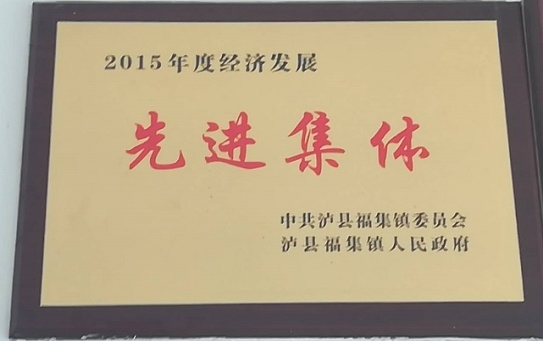 2015年度经济发展
先进集体
中共泸县福集镇委员会
泸县福集镇人民政府